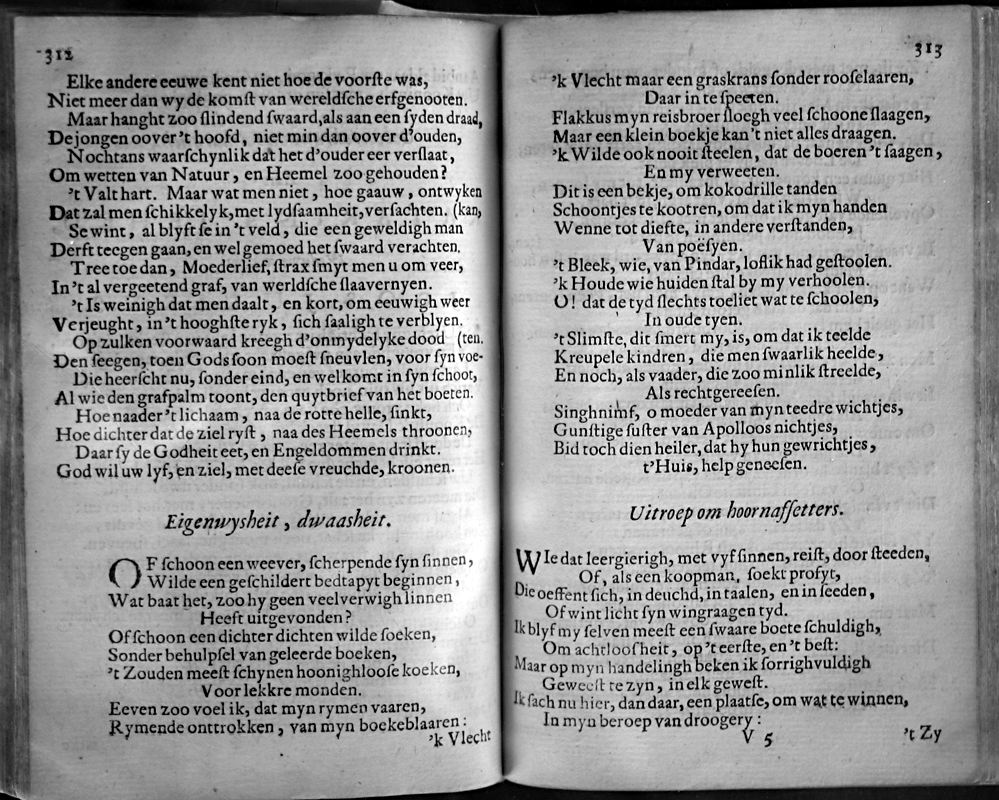 312
Elke andere eeuwe kent niet hoe de voorſte was,
Niet meer dan wy de komſt van wereldſche erfgenooten.
Maar hanght zoo ſlindend ſwaard, als aan een ſyden draad,
De jongen oover 't hoofd, niet min dan oover d'ouden,
Nochtans waarſchynlik dat het d'ouder eer verſlaat,
Om wetten van Natuur, en Heemel zoo gehouden?
't Valt hart. Maar wat men niet, hoe gaauw, ontwyken
Dat zal men ſchikkelyk, met lydſaamheit, verſachten. (kan,
Se wint, al blyft ſe in 't veld, die een geweldigh man
Derft teegen gaan, en wel gemoed het ſwaard verachten.
Tree toe dan, Moederlief, ſtrax ſmyt men u om veer,
In 't al vergeetend graf, van werldſche ſlaavernyen.
't Is weinigh dat men daalt, en kort, om eeuwigh weer
Verjeught, in 't hooghſte ryk, ſich ſaaligh te verblyen.
Op zulken voorwaard kreegh d'onmydelyke dood (ten.
Den ſeegen, toen Gods ſoon moeſt ſneuvlen, voor ſyn voe-
Die heerſcht nu, ſonder eind, en welkomt in ſyn ſchoot,
Al wie den grafpalm toont, den quytbrief van het boeten.
Hoe naader 't lichaam, naa de rotte helle, ſinkt,
Hoe dichter dat de ziel ryſt, naa des Heemels throonen,
Daar ſy de Godheit eet, en Engeldommen drinkt.
God wil uw lyf, en ziel, met deeſe vreuchde, kroonen.
Eigenwysheit, dwaasheit.
OF ſchoon een weever, ſcherpende ſyn ſinnen,
Wilde een geſchildert bedtapyt beginnen,
Wat baat het, zoo hy geen veelverwigh linnen
Heeft uitgevonden?
Of ſchoon een dichter dichten wilde ſoeken,
Sonder behulpſel van geleerde boeken,
't Zouden meeſt ſchynen hoonighlooſe koeken,
Voor lekkre monden.
Eeven zoo voel ik, dat myn rymen vaaren,
Rymende onttrokken, van myn boekeblaaren:
'k Vlecht
313
'k Vlecht maar een graskrans ſonder rooſelaaren,
Daar in te ſpeeten.
Flakkus myn reisbroer ſloegh veel ſchoone ſlaagen,
Maar een klein boekje kan 't niet alles draagen.
'k Wilde ook nooit ſteelen, dat de boeren 't ſaagen,
En my verweeten.
Dit is een bekje, om kokodrille tanden
Schoontjes te kootren, om dat ik myn handen
Wenne tot diefte, in andere verſtanden,
Van poëſyen.
't Bleek, wie, van Pindar, loflik had geſtoolen.
'k Houde wie huiden ſtal by my verhoolen.
O! dat de tyd ſlechts toeliet wat te ſchoolen,
In oude tyen.
't Slimſte, dit ſmert my, is, om dat ik teelde
Kreupele kindren, die men ſwaarlik heelde,
En noch, als vaader, die zoo minlik ſtreelde,
Als rechtgereeſen.
Singhnimf, o moeder van myn teedre wichtjes,
Gunſtige ſuſter van Apolloos nichtjes,
Bid toch dien heiler, dat hy hun gewrichtjes,
t'Huis, help geneeſen.
Uitroep om hoornaſſetters.
WIe dat leergierigh, met vyf ſinnen, reiſt, door ſteeden,
Of, als een koopman, ſoekt profyt,
Die oeffent ſich, in deuchd, in taalen, en in ſeeden,
Of wint licht ſyn wingraagen tyd.
Ik blyf my ſelven meeſt een ſwaare boete ſchuldigh,
Om achtlooſheit, op 't eerſte, en 't beſt:
Maar op myn handelingh beken ik ſorrighvuldigh
Geweeſt te zyn, in elk geweſt.
Ik ſach nu hier, dan daar, een plaatſe, om wat te winnen,
In myn beroep van droogery:
V 5
't Zy